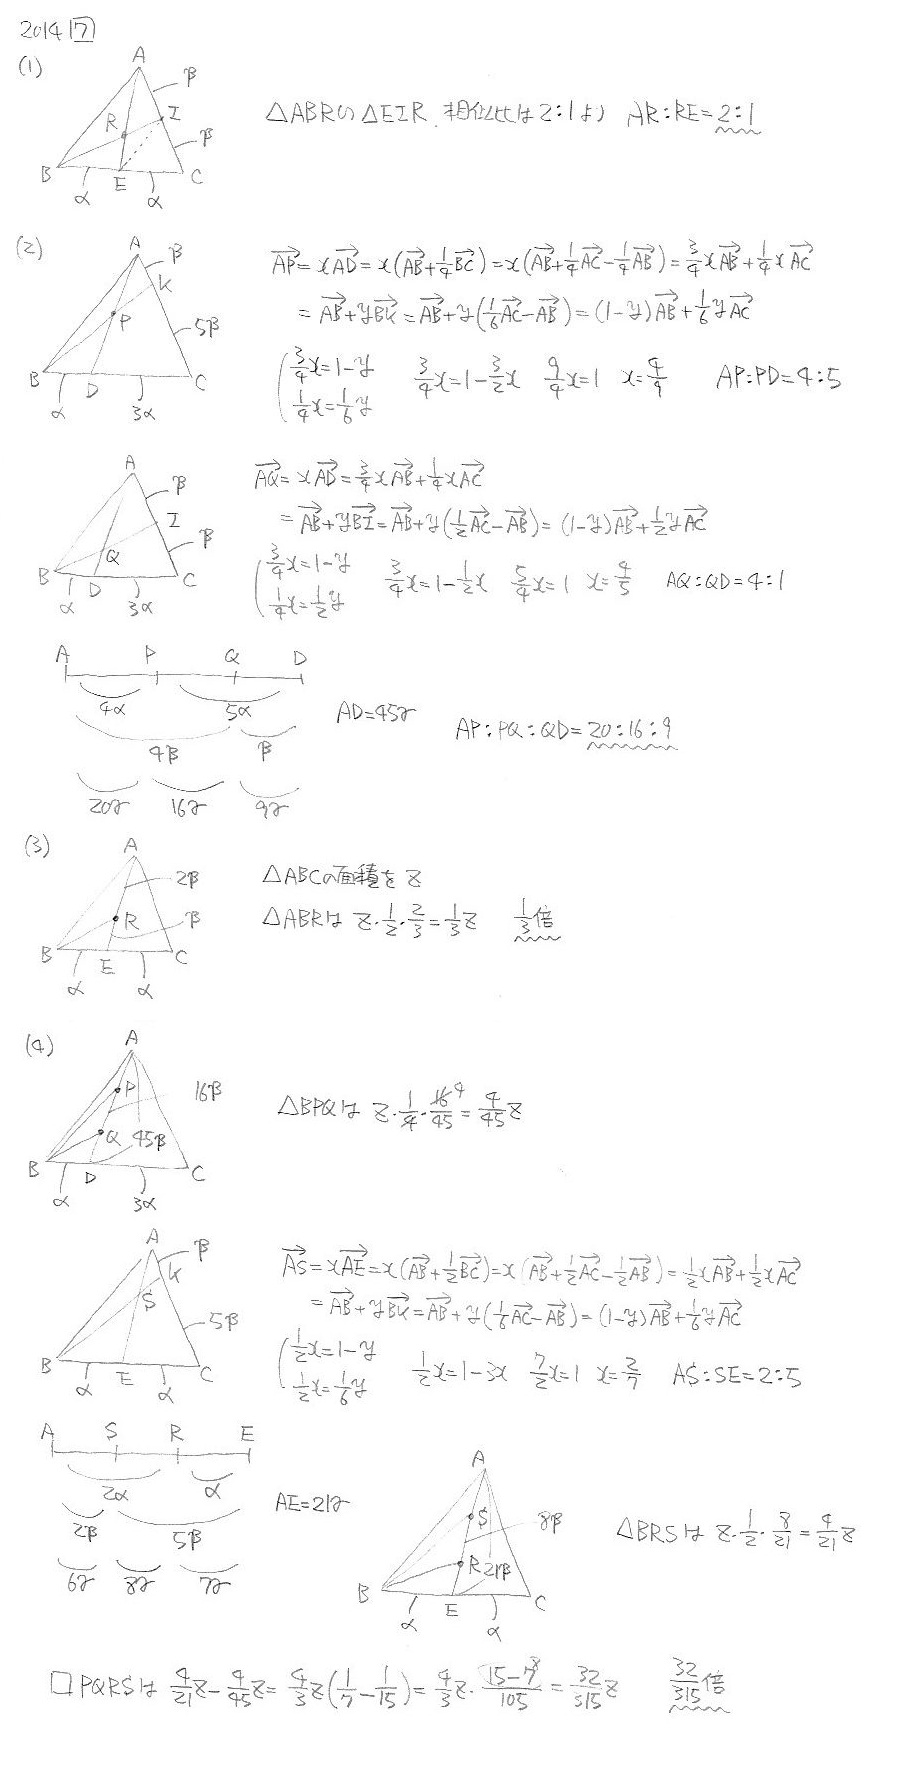 2014 [7]
(1)
A
β
R
I
β
B
E
C
α
α
△ABRの△EIR 相似比は2:1より AR:RE=2:1
(2)
A
β
K
P
5β
B
D
C
α
3α
AP→=xAD→=x(AB→+1/4BC→)=x(AB→+1/4AC→-1/4AB→)=3/4xAB→+1/4xAC→
=AB→+yBK→=AB→+y(1/6AC→-AB→)=(1-y)AB→+1/6yAC→
(3/4x=1-y
1/4x=1/6y
3/4x=1-3/2x 9/4x=1 x=4/9 AP:PD=4:5
A
β
I
β
Q
B
D
C
α
3α
AQ→=xAD→=3/4xAB→+1/4xAC→
=AB→+yBI→=AB→+y(1/2AC→-AB→)=(1-y)AB→+1/2yAC→
(3/4x=1-y
1/4x=1/2y
3/4x=1-1/2x 5/4x=1 x=4/5 AQ:QD=4:1
A P Q D
4α 5α
4β β
20γ 16γ 9γ
AD=45γ AP:PQ:QD=20:16:9
(3)
A
2β
R
β
B
E
C
α
α
△ABCの面積をz
△ABRは z・1/2・2/3=1/3z 1/3倍
(4)
A
P
16β
Q 45β
B
D
C
α
3α
△BPQは z・1/4・16/45 4=4/45z
A
β
K
S
5β
B
E
C
α
α
AS→=xAE→=x(AB→+1/2BC→)=x(AB→+1/2AC→-1/2AB→)=1/2xAB→+1/2xAC→
=AB→+yBK→=AB→+y(1/6AC→-AB→)=(1-y)AB→+1/6yAC→
(1/2x=1-y
1/2x=1/6y
1/2x=1-3x 7/2x=1 x=2/7 AS:SE=2:5
A S R E
2α α
2β 5β
6γ 8γ 7γ
AE=21γ
A
S
8β
R 21β
B
E
C
α
α
△BRSは z・1/2・8/21=4/21z
□PQRSは 4/21z-4/45z=4/3z(1/7-1/15)=4/3z・15-7 8/105=32/315z 32/315倍